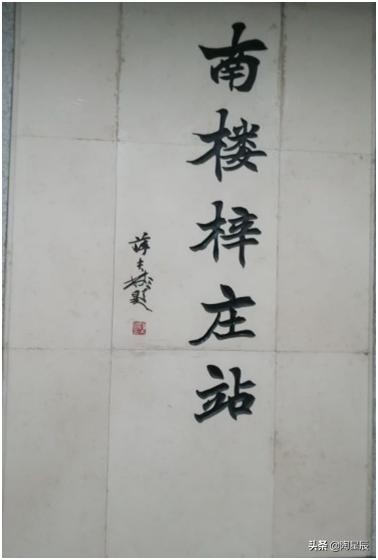 南楼梓庄站
头条 @淘星辰